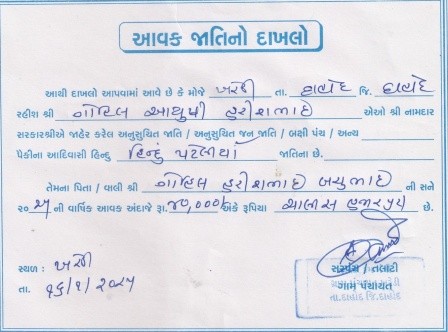 આવક જાતિનો દાખલો
આથી દાખલો આપવામાં આવે છે કે મોજે ખરોડ તા. દાહોદ જિ. દાહોદ
રહીશ શ્રી ગોહિલ આયુષી હરીશભાઈ એઓ શ્રી નામદાર
સરકારશ્રીએ જાહેર કરેલ અનુસુચિત જાતિ / અનુસુચિત જન જાતિ / બક્ષી પંચ / અન્ય
પૈકીના આદિવાસી હિન્દુ હિન્દુ પટેલીયા જાતિના છે.
તેમના પિતા / વાલી શ્રી ગોહિલ હરીશભાઈ બચુભાઈ ની સને
૨૦૨૫ ની વાર્ષિક આવક અંદાજે રૂા. ૪૦,૦૦૦/ અંકે રૂપિયા ચાલીસ હજાર પુરા છે.
સ્થળ :
તા. ૧૬/૧/૨૦૨૫
સરપંચ / તલાટી
ગામ પંચાયત